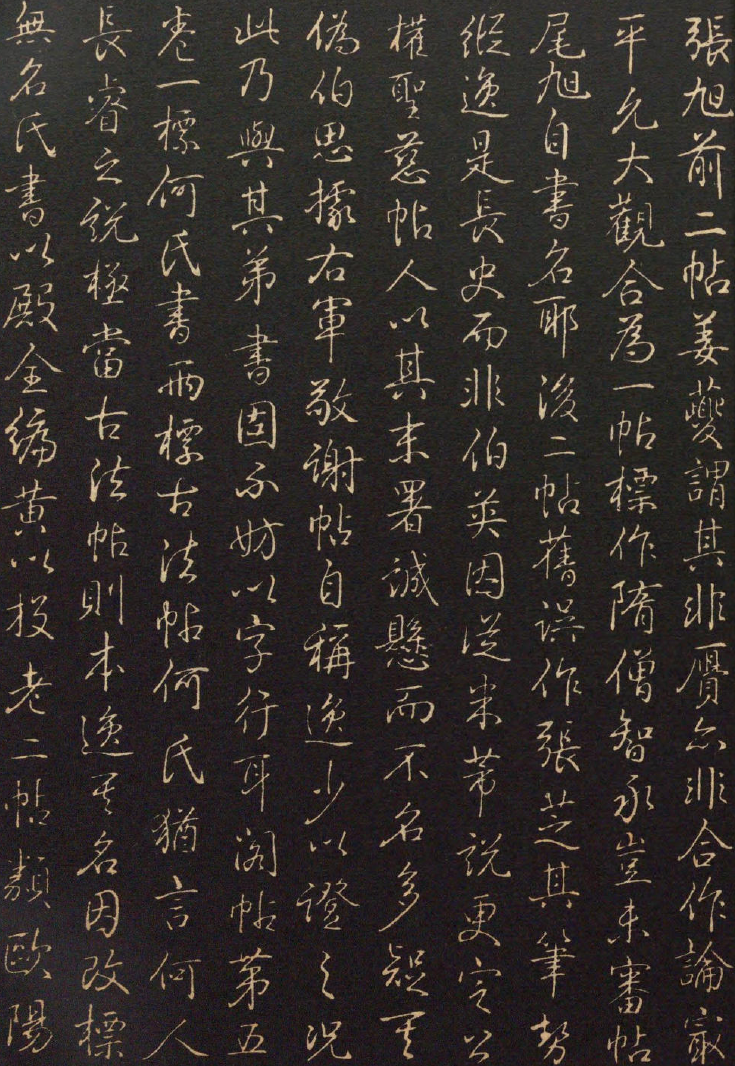 張旭前二帖姜夔謂其非贋亦非合作論最
平允大觀合為一帖標作隋僧智永豈未審帖
尾旭自書名耶後二帖舊誤作張芝其筆勢
縱逸是長史而非伯英因從米芾說更定公
權聖慈帖人以其末署誠懸而不名多疑其
偽伯思據右軍敬謝帖自稱逸少以證之況
此乃與其弟書固不妨以字行耳閣帖第五
卷一標何氏書兩標古法帖何氏猶言何人
長睿之說極當古法帖則本逸其名因改標
無名氏書以殿全編黄以投老二帖類歐陽